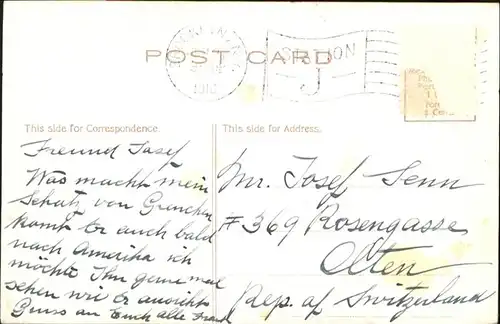 POST CARD
STATION
J
1910
This side for Correspondence.
This side for Address.
Freund Josef
Was macht mein
Schatz von Grenchen
komt Er auch bald
nach Amerika ich
möchte Ihn gerne mal
sehen wie Er aussieht
Gruss an Euch alle
Mr. Josef Senn
# 369 Rosengasse
Olten
Rep. of Switzerland